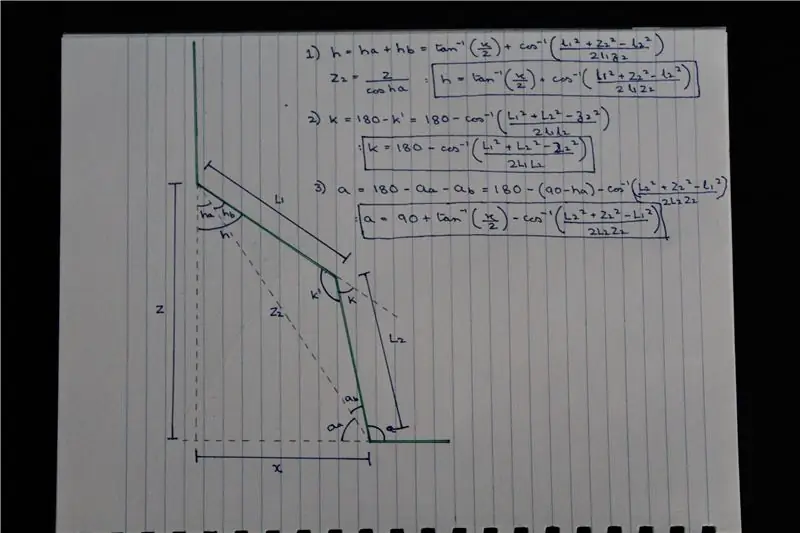 1) h = ha + hb = tan⁻¹(x/z) + cos⁻¹((l₁² + Z₂² - l₂²)/(2l₁z₂))
Z₂ = z/cos ha : h = tan⁻¹(x/z) + cos⁻¹((L₁² + Z₂² - l₂²)/(2L₁Z₂))
2) k = 180 - k' = 180 - cos⁻¹((L₁² + L₂² - z₂²)/(2L₁L₂))
: k = 180 - cos⁻¹((L₁² + L₂² - Z₂²)/(2L₁L₂))
3) a = 180 - aa - ab = 180 - (90 - ha) - cos⁻¹((L₂² + Z₂² - L₁²)/(2L₂Z₂))
: a = 90 + tan⁻¹(x/z) - cos⁻¹((L₂² + Z₂² - L₁²)/(2L₂Z₂))
L₁
ha hb
h
k' k
Z
Z₂
L₂
ab
aa a
x